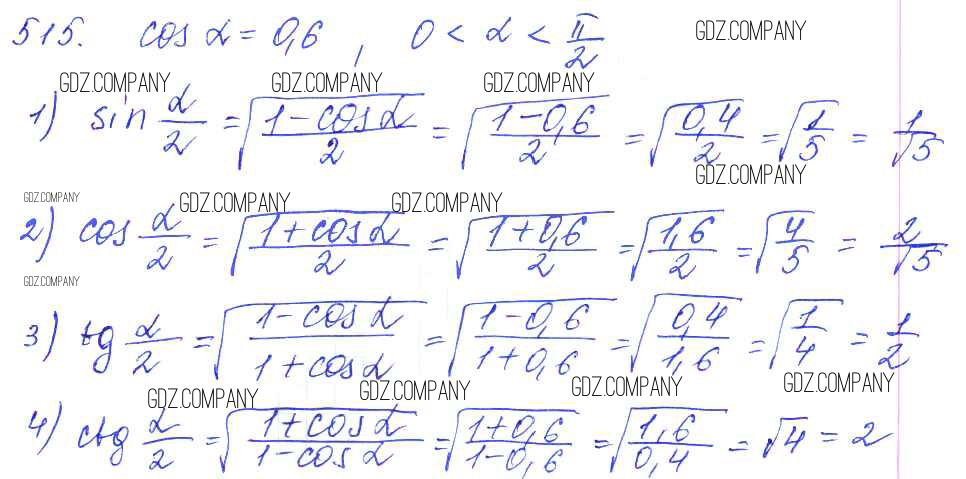 515. cos α = 0,6 , 0 < α < π/2 GDZ.COMPANY
GDZ.COMPANY GDZ.COMPANY GDZ.COMPANY
1) sin α/2 = √((1-cos α)/2) = √((1-0,6)/2) = √(0,4/2) = √(1/5) = 1/√5
GDZ.COMPANY
GDZ.COMPANY GDZ.COMPANY GDZ.COMPANY
2) cos α/2 = √((1+cos α)/2) = √((1+0,6)/2) = √(1,6/2) = √(4/5) = 2/√5
GDZ.COMPANY
3) tg α/2 = √((1-cos α)/(1+cos α)) = √((1-0,6)/(1+0,6)) = √(0,4/1,6) = √(1/4) = 1/2
GDZ.COMPANY GDZ.COMPANY GDZ.COMPANY GDZ.COMPANY
4) ctg α/2 = √((1+cos α)/(1-cos α)) = √((1+0,6)/(1-0,6)) = √(1,6/0,4) = √4 = 2